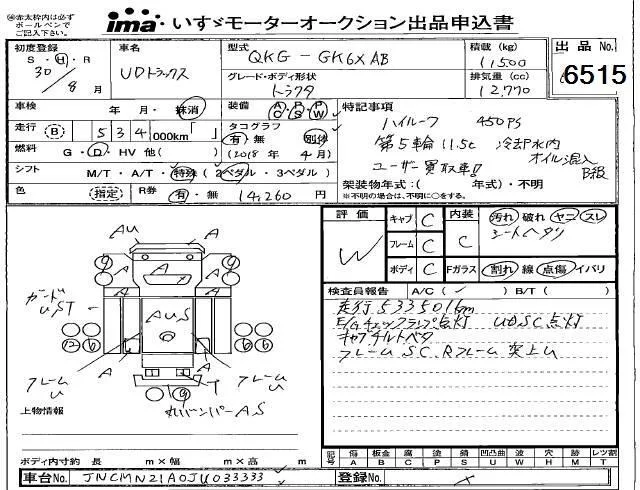 ㊟赤太枠内は必ず
ボールペンで
ご記入下さい。
ima いすゞモーターオークション出品申込書
初度登録 車名 型式 積載(kg) 出品No.
S・H・R 30/8月 UDトラックス QKG-GK6XAB 11500 6515
グレード・ボディ形状 排気量(cc)
トラクタ 12,770
車検 年・月・抹消 装備 A/C P/S P/W 特記事項
走行 B 534,000km「 」 タコグラフ 有・無 別体 ハイルーフ 450PS
燃料 G・D・HV 他( ) (2018年4月) 第5輪11.5t 冷却水内
シフト M/T・A/T・特殊(2ペダル・3ペダル) ユーザー買取車!! オイル混入 B級
色 (指定) R券 有・無 14,260円 架装物年式:( 年式)・不明
※不明の場合は、不明に○をする。
評価 キャブ C 内装 汚れ 破れ ヤニ スレ
W フレーム C C シートヘタリ
ボディ C Fガラス 割れ 線 点傷 イバリ
検査員報告 A/C(✓)B/T( )
走行533501km
E/Gチェックランプ点灯 UDSC点灯
キャブチルトベタ
フレームSC、Rフレーム突上U
AU
A A A
ガード UST
AUS
フレームU A A フレームU
T
Rバンパー A S
上物情報
ボディ内寸約 長 m×幅 m×高 m
記号 傷 板金 腐 塗 錆 凹凸曲 波 穴 跡 レツ割
A B C P S U W H M T
車台No. JNCMN21A0JU033333 登録No.